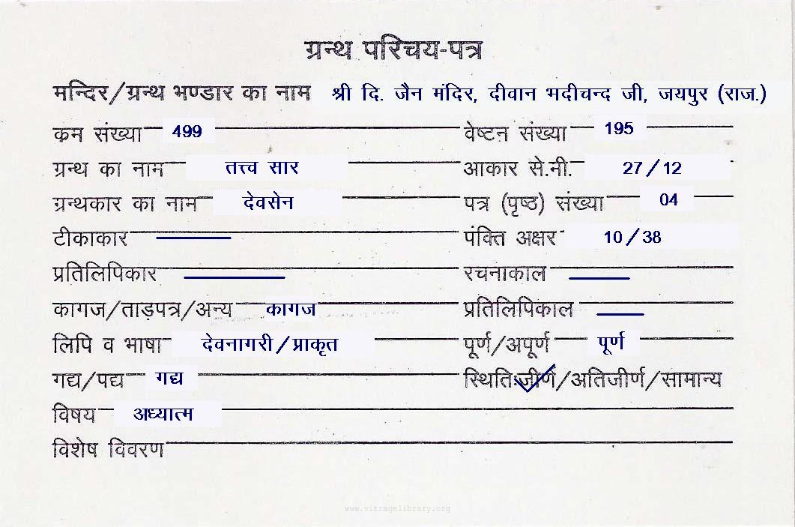 ग्रन्थ परिचय-पत्र
मन्दिर/ग्रन्थ भण्डार का नाम श्री दि. जैन मंदिर, दीवान भदीचन्द जी, जयपुर (राज.)
कम संख्या 499 वेष्टन संख्या 195
ग्रन्थ का नाम तत्त्व सार आकार से.मी. 27/12
ग्रन्थकार का नाम देवसेन पत्र (पृष्ठ) संख्या 04
टीकाकार —— पंक्ति अक्षर 10/38
प्रतिलिपिकार —— रचनाकाल ——
कागज/ताड़पत्र/अन्य कागज प्रतिलिपिकाल ——
लिपि व भाषा देवनागरी/प्राकृत पूर्ण/अपूर्ण पूर्ण
गद्य/पद्य गद्य स्थिति:जीर्ण/अतिजीर्ण/सामान्य
विषय अध्यात्म
विशेष विवरण
www.vitragelibrary.org